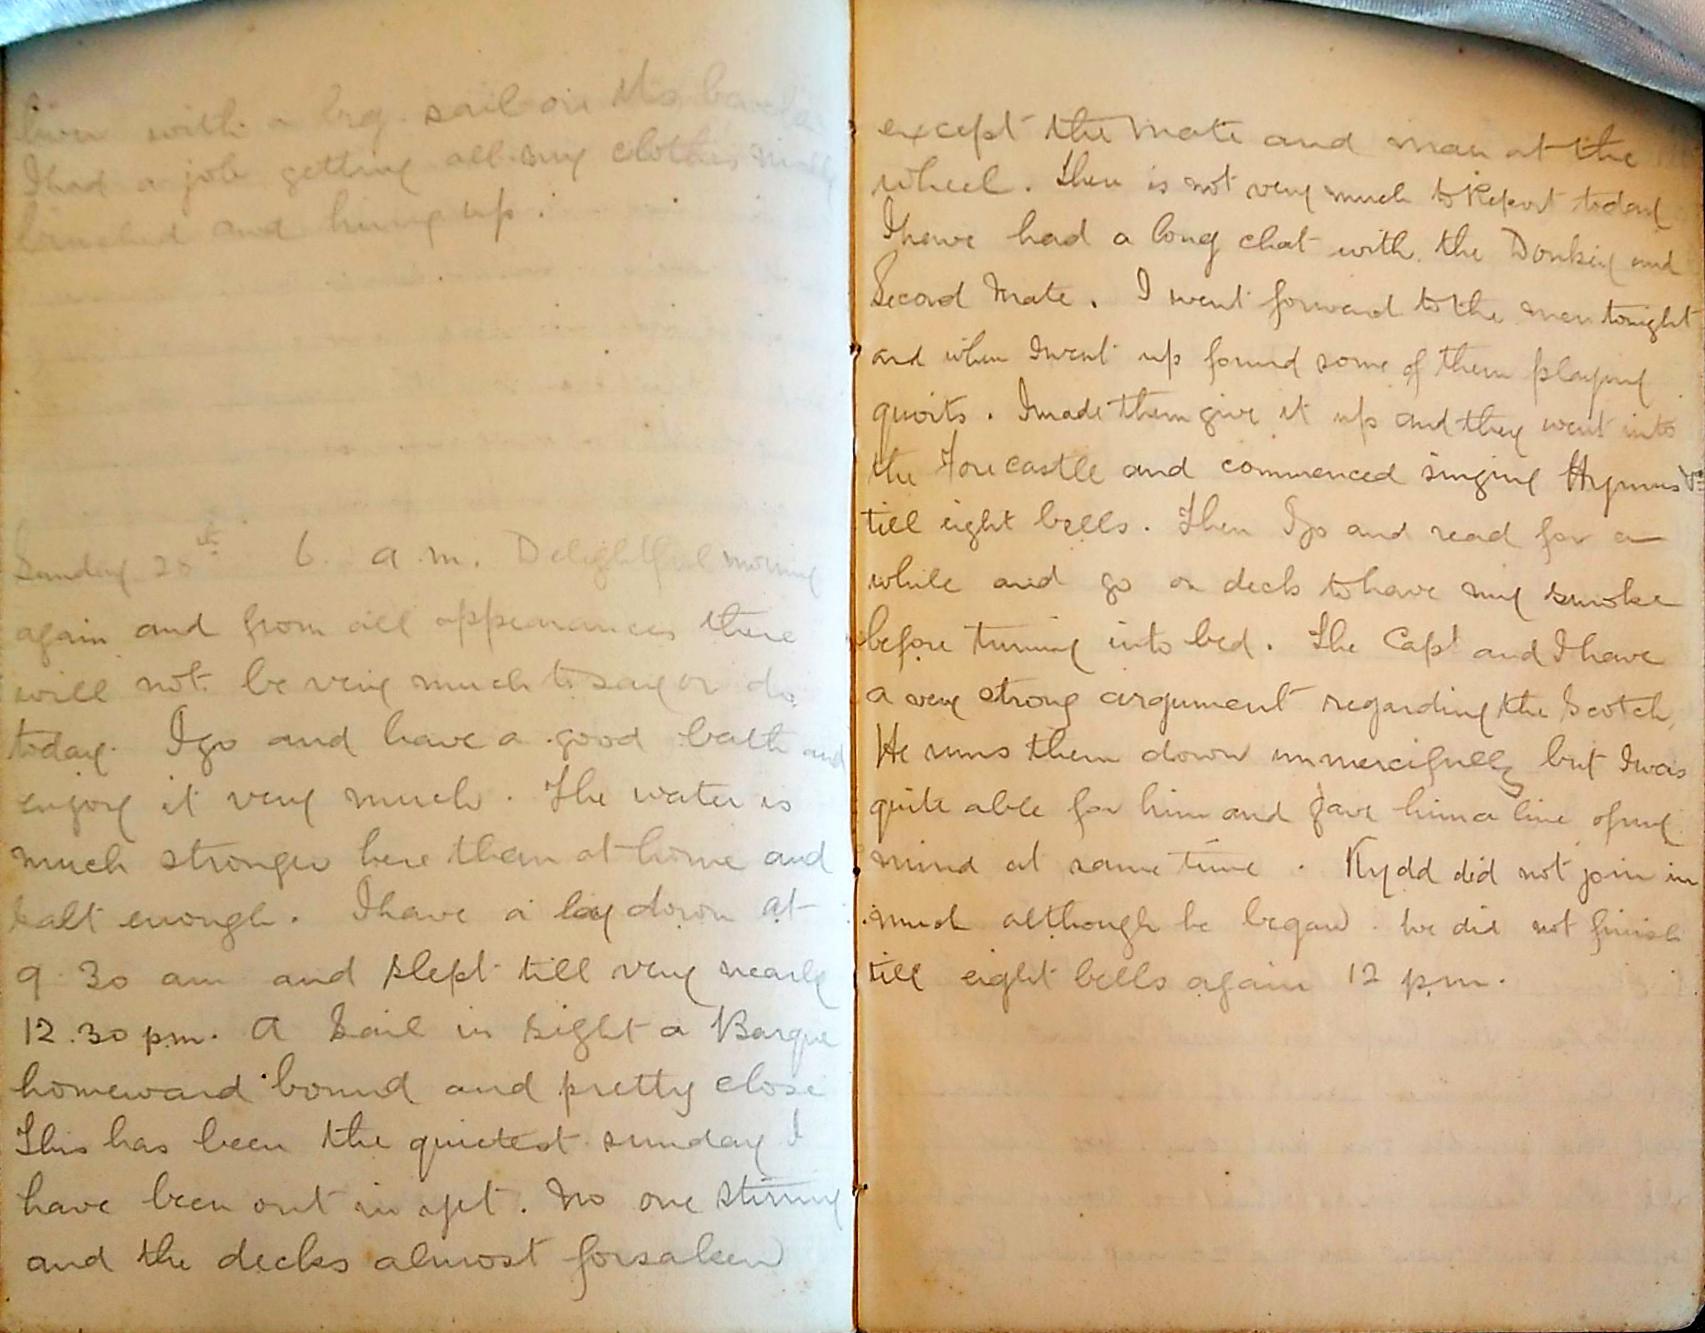 with a big sail on his
I had a job getting all my clothes nicely
brushed and hung up.
Sunday 28th 6. a.m. Delightful morning
again and from all appearances there
will not be very much to say or do
today. I go and have a good bath and
enjoy it very much. The water is
much stronger here than at home and
salt enough. I have a lay down at
9.30 am and slept till very nearly
12.30 pm. A Sail in sight a Barque
homeward bound and pretty close
This has been the quietest sunday I
have been out in yet. No one stirring
and the decks almost forsaken
except the Mate and man at the
wheel. There is not very much to Report today
I have had a long chat with the Donkey and
Second Mate. I went forward to the men tonight
and when I went up found some of them playing
quoits. I made them give it up and they went into
the Forecastle and commenced singing Hymns &c
till eight bells. Then I go and read for a
while and go on deck to have my smoke
before turning into bed. The Capt and I have
a very strong argument regarding the Scotch,
He runs them down unmercifully but I was
quite able for him and gave him a line of my
mind at same time. Kydd did not join in
much although he began. We did not finish
till eight bells again 12 p.m.